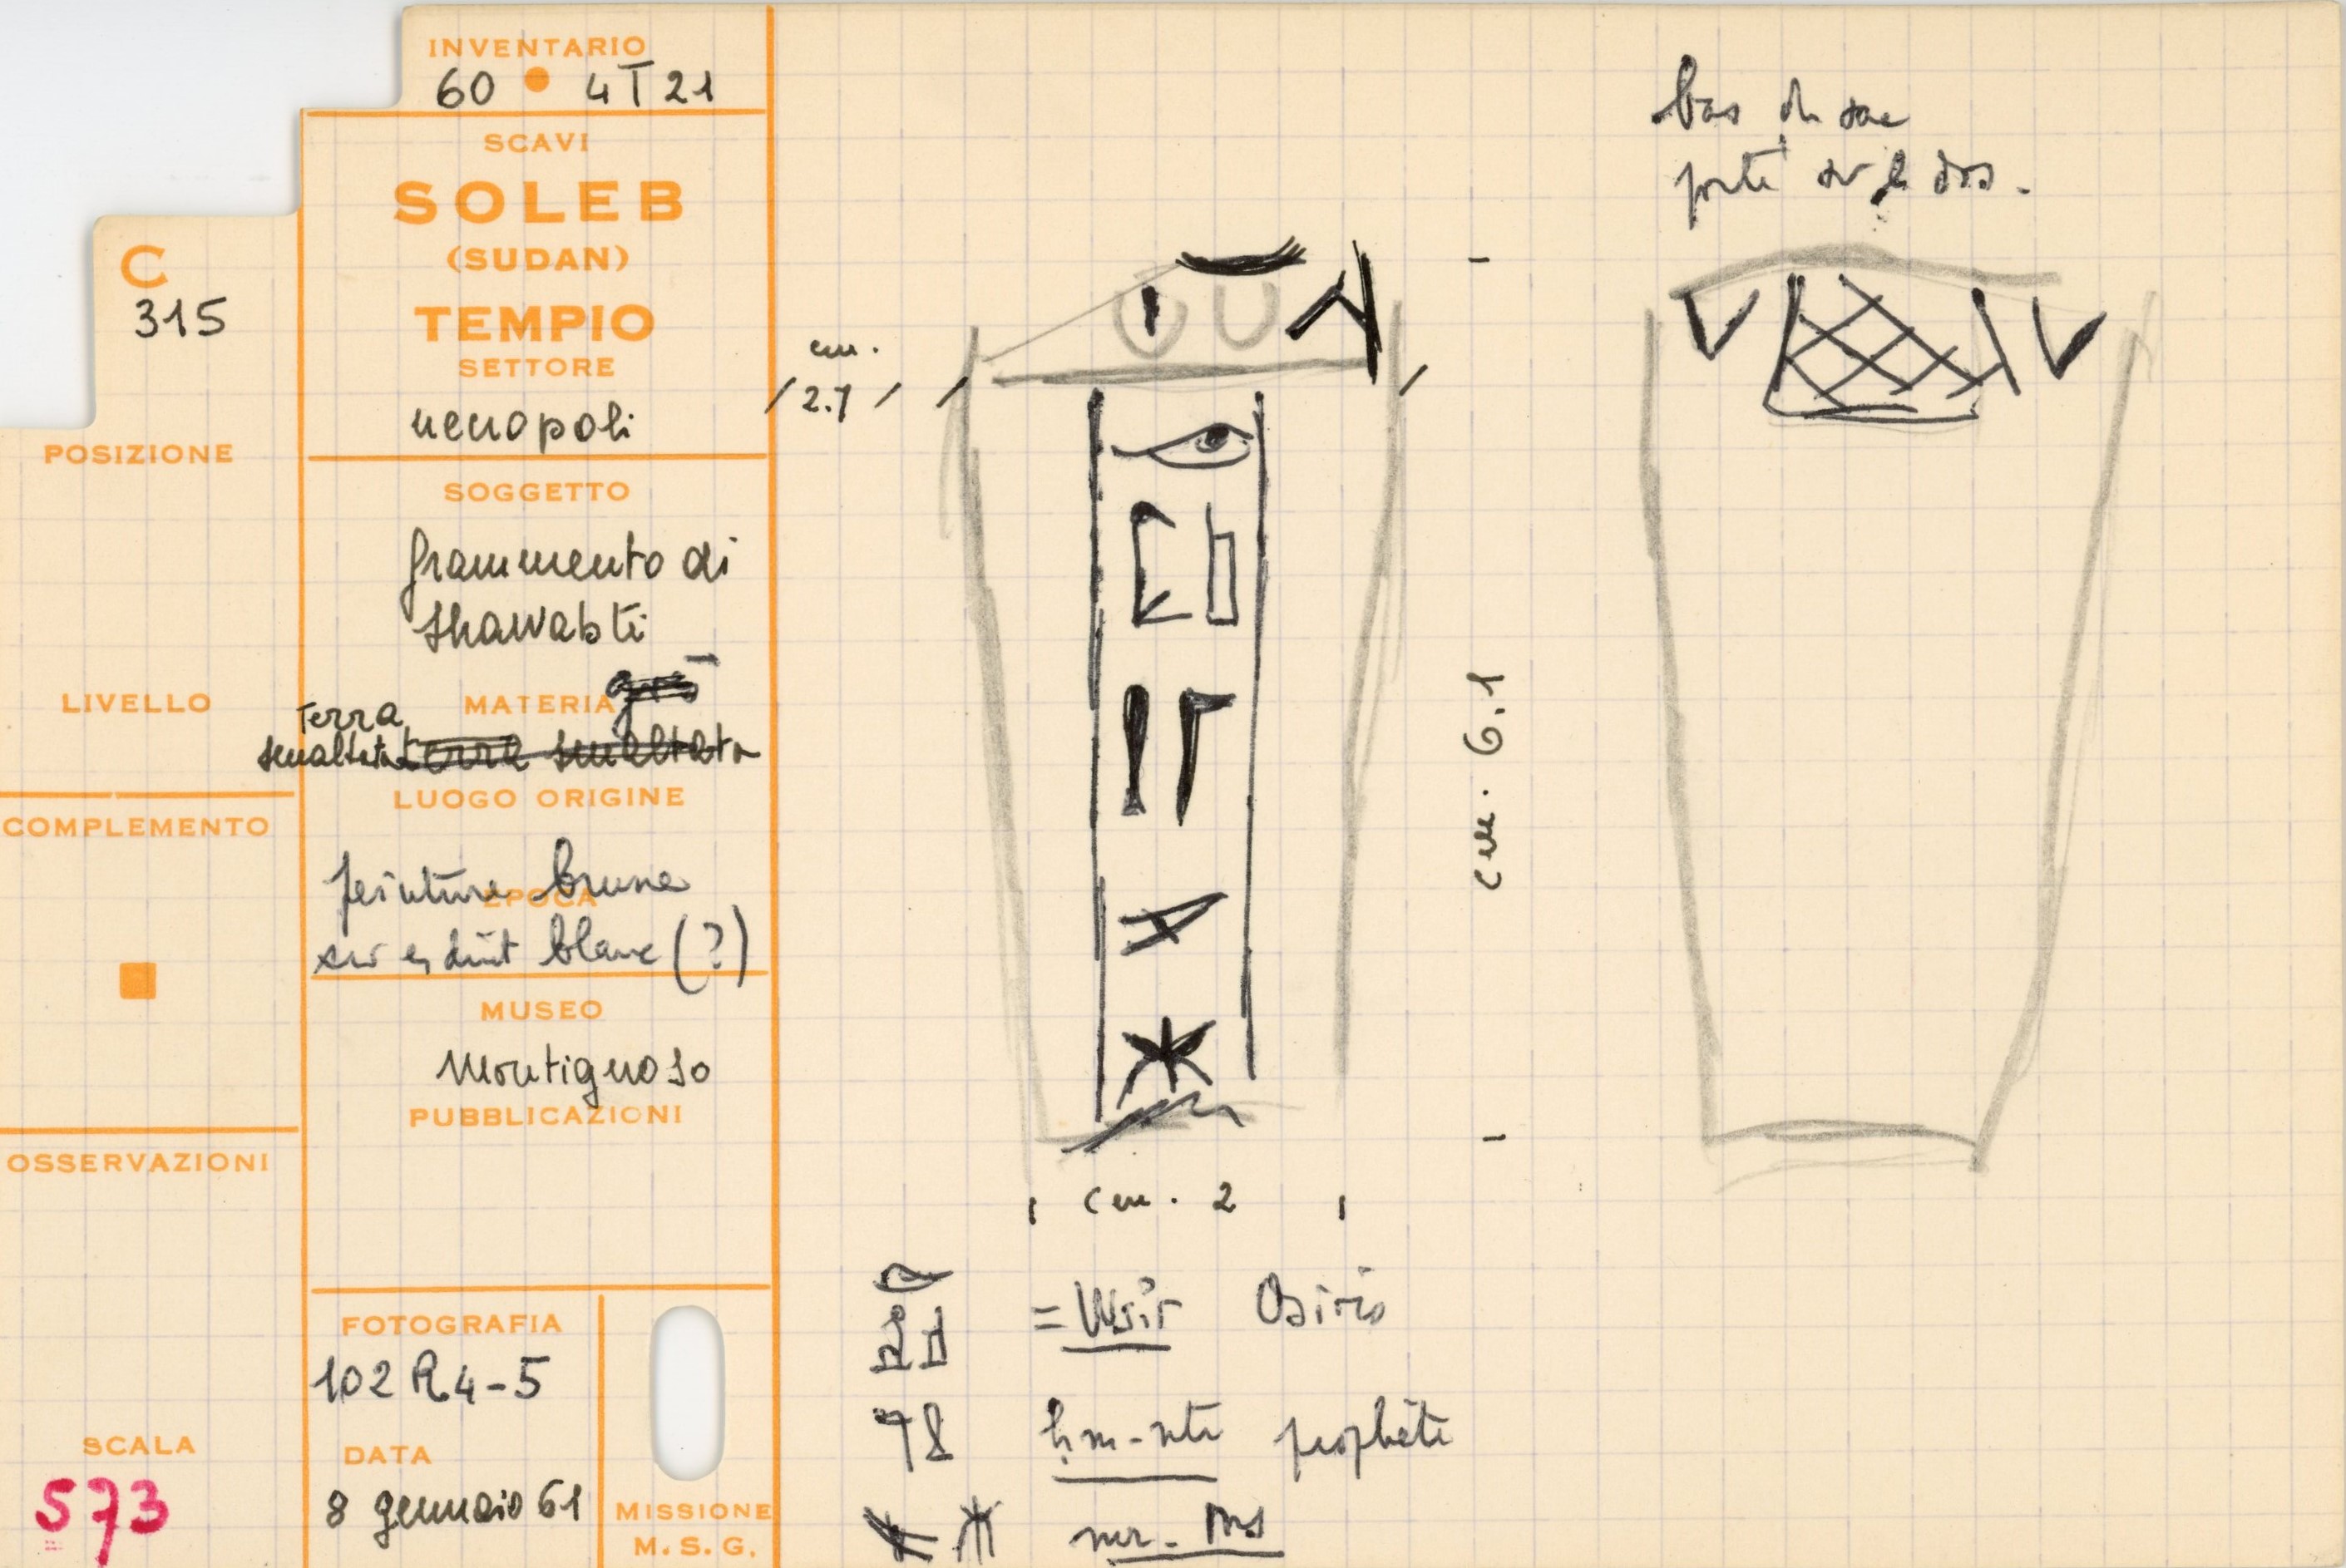 INVENTARIO
60 • 4T21
SCAVI
SOLEB
(SUDAN)
TEMPIO
SETTORE
necropoli
C
315
POSIZIONE
LIVELLO
COMPLEMENTO
OSSERVAZIONI
SCALA
573
SOGGETTO
frammento di
shawabti
MATERIA
terra
smaltata terra smaltata
LUOGO ORIGINE
peinture brune
EPOCA
sur enduit blanc (?)
MUSEO
Montignoso
PUBBLICAZIONI
FOTOGRAFIA
102 R4-5
DATA
8 gennaio 61
MISSIONE
M.S.G.
cm.
2.7
cm. 6.1
cm. 2
= Wsir Osiris
ḥm-ntr prophète
mr-ms
bas du sac
porté sur le dos.